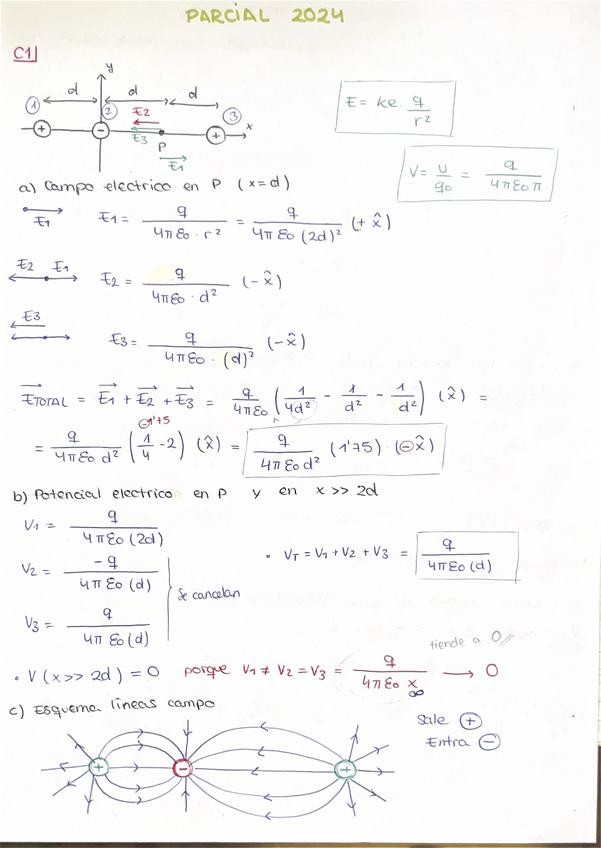 PARCIAL 2024
C1|
y
d d d
1 2 E2 3
+ - E3 P + x
E1
E = ke · q / r²
V = U / q0 = q / 4πε0 π
a) Campo electrico en P (x=d)
E1 E1 = q / 4πε0 · r² = q / 4πε0 (2d)² (+ x̂)
E2 E1 E2 = q / 4πε0 · d² (- x̂)
E3 E3 = q / 4πε0 · (d)² (- x̂)
E TOTAL = E1 + E2 + E3 = q / 4πε0 (1 / 4d² - 1 / d² - 1 / d²) (x̂) =
-1'75
= q / 4πε0 d² (1 / 4 - 2) (x̂) = q / 4πε0 d² (1'75) · (- x̂)
b) Potencial electrico en P y en x >> 2d
V1 = q / 4πε0 (2d)
V2 = -q / 4πε0 (d)
V3 = q / 4πε0 (d)
Se cancelan
· VT = V1 + V2 + V3 = q / 4πε0 (d)
tiende a 0//
· V (x >> 2d) = 0 porque V1 ≠ V2 = V3 = q / 4πε0 x → 0
∞
c) Esquema líneas campo
Sale +
Entra -
+ - +